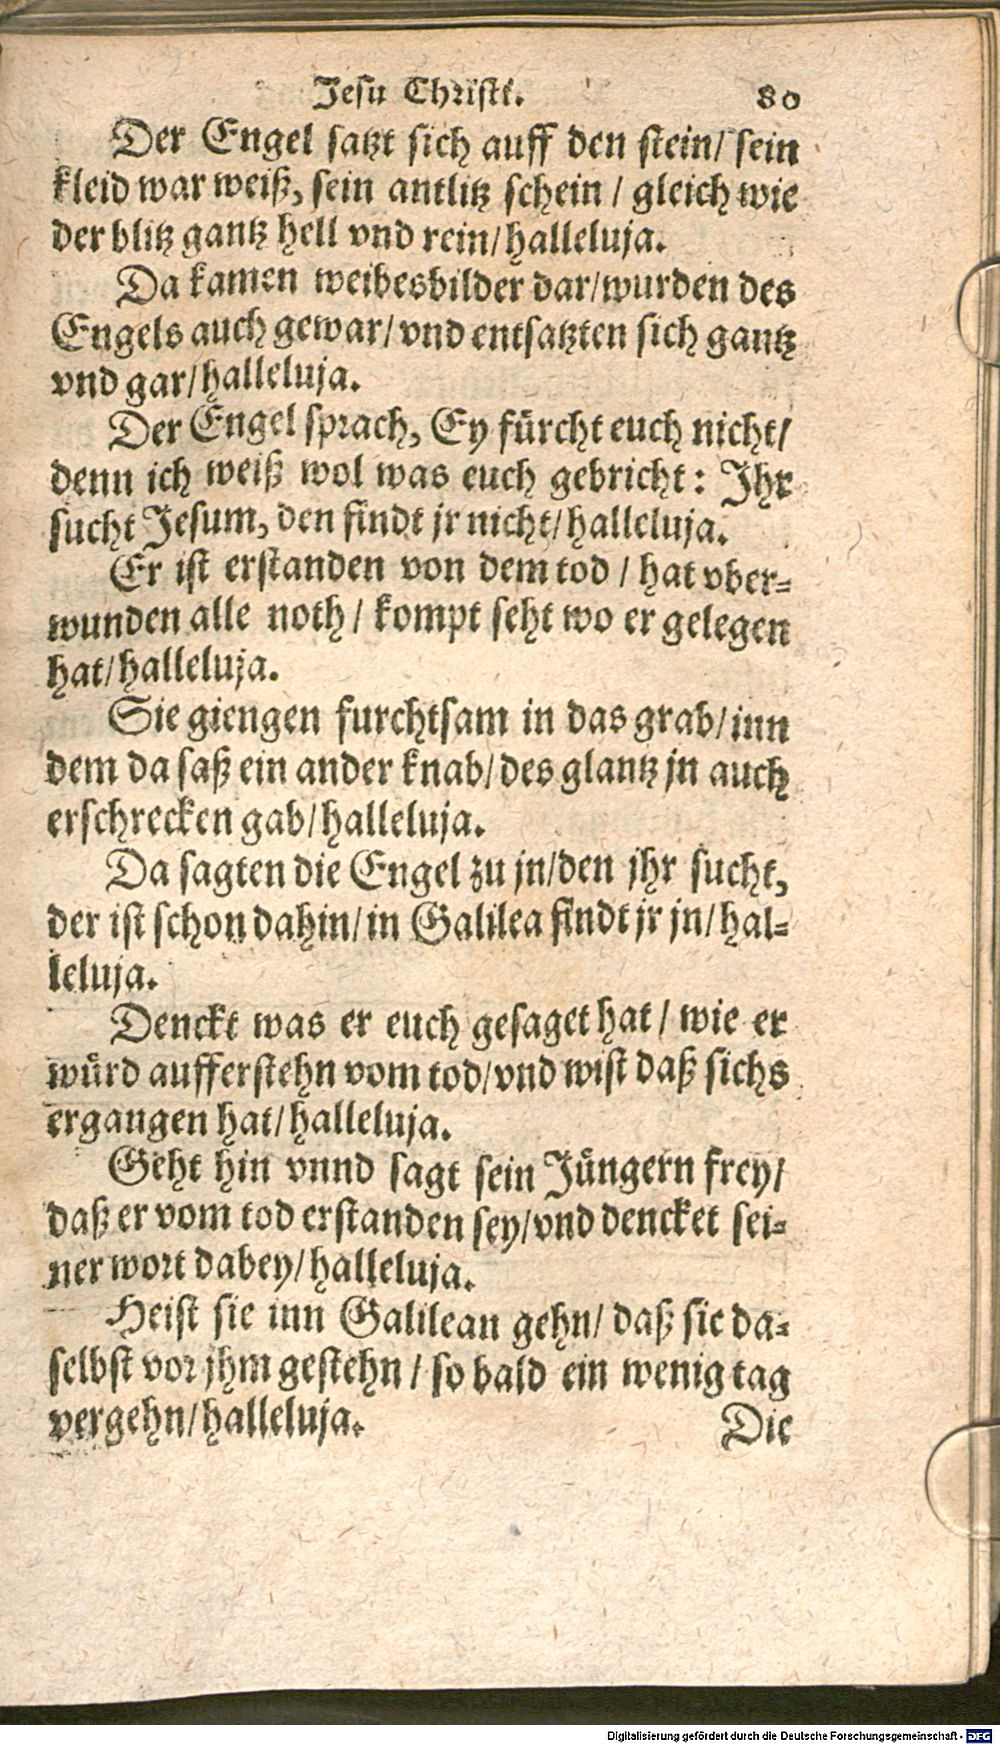 Jesu Christi. 80
Der Engel satzt sich auff den stein/ sein
kleid war weiß, sein antlitz schein / gleich wie
der blitz gantz hell vnd rein/halleluja.
Da kamen weibesbilder dar/wurden des
Engels auch gewar/vnd entsatzten sich gantz
vnd gar/halleluja.
Der Engel sprach, Ey fürcht euch nicht/
denn ich weiß wol was euch gebricht: Ihr
sucht Jesum, den findt jr nicht/halleluja.
Er ist erstanden von dem tod / hat vber-
wunden alle noth / kompt seht wo er gelegen
hat/halleluja.
Sie giengen furchtsam in das grab/inn
dem da saß ein ander knab/des glantz jn auch
erschrecken gab/halleluja.
Da sagten die Engel zu jn/den jhr sucht,
der ist schon dahin/in Galilea findt jr jn/hal-
leluja.
Denckt was er euch gesaget hat / wie er
würd aufferstehn vom tod/vnd wist daß sichs
ergangen hat/halleluja.
Geht hin vnnd sagt sein Jüngern frey/
daß er vom tod erstanden sey/vnd dencket sei-
ner wort dabey/halleluja.
Heist sie inn Galilean gehn/ daß sie da-
selbst vor jhm gestehn / so bald ein wenig tag
vergehn/halleluja. Die
Digitalisierung gefördert durch die Deutsche Forschungsgemeinschaft - DFG